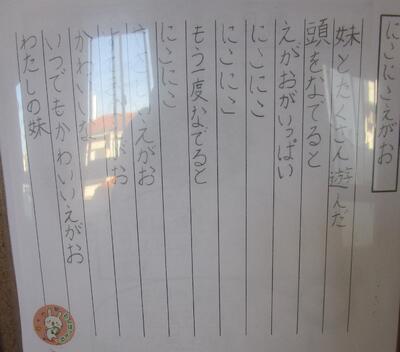 にこにこえがお
妹とたくさん遊んだ
頭をなでると
えがおがいっぱい
にこにこ
にこにこ
もう一度なでると
にこにこ
えがお
がお
かわいいな
いつでもかわいいえがお
わたしの妹